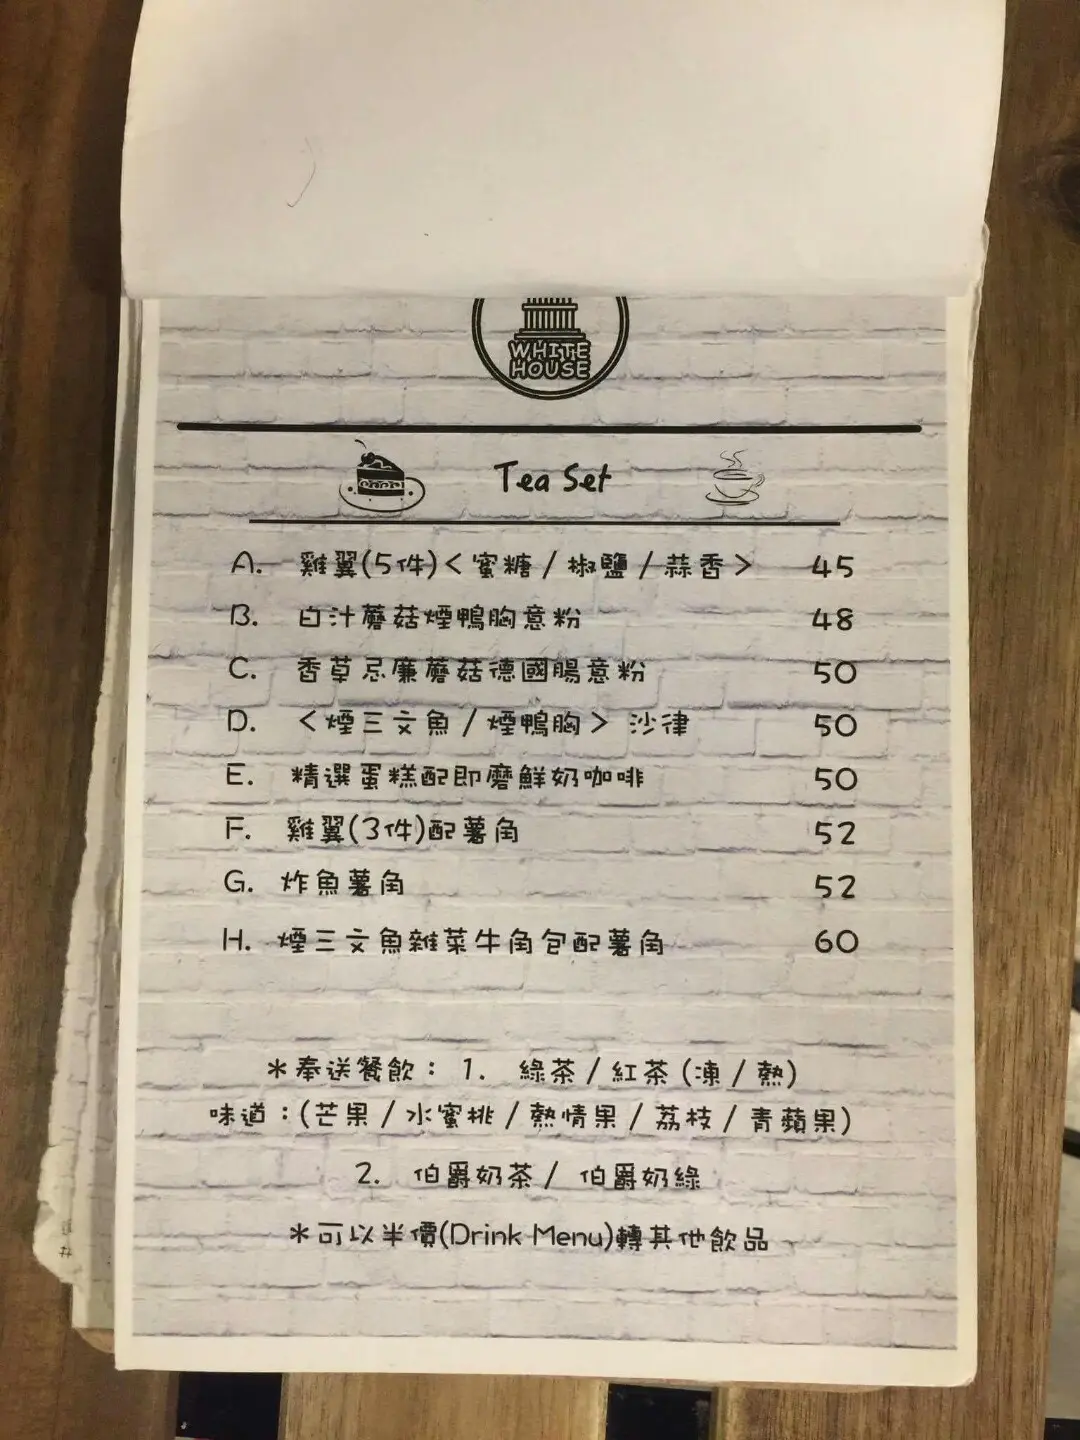 WHITE
HOUSE
Tea Set
A. 雞翼(5件)<蜜糖/椒鹽/蒜香> 45
B. 白汁蘑菇煙鴨胸意粉 48
C. 香草忌廉蘑菇德國腸意粉 50
D. <煙三文魚/煙鴨胸> 沙律 50
E. 精選蛋糕配即磨鮮奶咖啡 50
F. 雞翼(3件)配薯角 52
G. 炸魚薯角 52
H. 煙三文魚雜菜牛角包配薯角 60
*奉送餐飲：1. 綠茶/紅茶 (凍/熱)
味道：(芒果/水蜜桃/熱情果/荔枝/青蘋果)
2. 伯爵奶茶/ 伯爵奶綠
*可以半價(Drink Menu)轉其他飲品